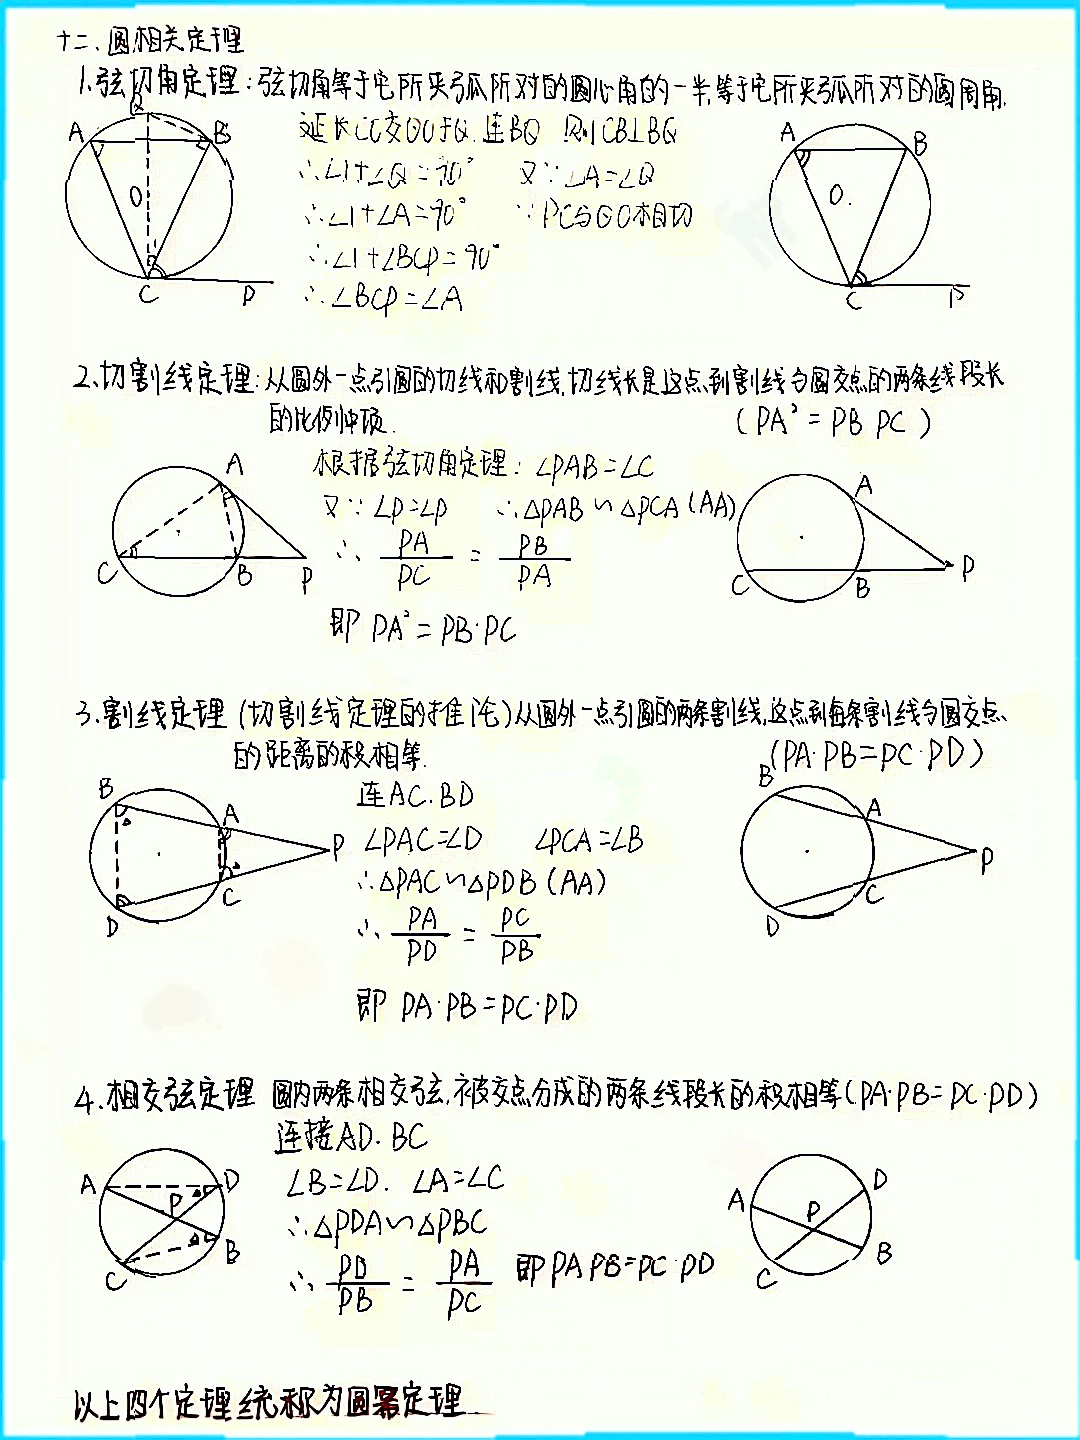 十二、圆相关定理
1.弦切角定理：弦切角等于它所夹弧所对的圆心角的一半,等于它所夹弧所对的圆周角.
延长CO交⊙O于Q.连BQ 则CB⊥BQ
∴∠1+∠Q=90° 又∵∠A=∠Q
∴∠1+∠A=90° ∵PC与⊙O相切
∴∠1+∠BCP=90°
∴∠BCP=∠A
A Q B O C P
A B O. C P
2、切割线定理：从圆外一点引圆的切线和割线,切线长是这点到割线与圆交点的两条线段长
的比例中项. (PA²=PB PC)
根据弦切角定理：∠PAB=∠C
又∵∠P=∠P ∴△PAB∽△PCA(AA)
∴ PA/PC = PB/PA
即 PA²=PB·PC
A C B P
A C B P
3.割线定理(切割线定理的推论)从圆外一点引圆的两条割线,这点到每条割线与圆交点
的距离的积相等. (PA·PB=PC·PD)
连AC.BD
∠PAC=∠D ∠PCA=∠B
∴△PAC∽△PDB(AA)
∴ PA/PD = PC/PB
即 PA·PB=PC·PD
B A P C D
B A P C D
4.相交弦定理 圆内两条相交弦,被交点分成的两条线段长的积相等(PA·PB=PC·PD)
连接AD.BC
∠B=∠D. ∠A=∠C
∴△PDA∽△PBC
∴ PD/PB = PA/PC 即PA PB=PC·PD
A D P B C
A D P B C
以上四个定理统称为圆幂定理